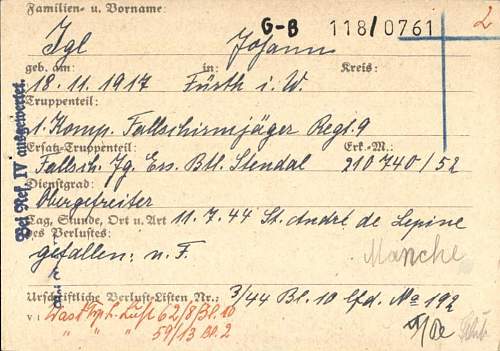 Familien- u. Vorname:
G-B 118/0761 2
Igl Johann
geb. am: in: Kreis:
18.11.1917 Fürth i. W.
Truppenteil:
1. Komp. Fallschirmjäger Regt. 9
Ersatz-Truppenteil: Erk.-M.:
Fallsch. Jg. Ers. Btl. Stendal 210740/52
Dienstgrad:
Obergefreiter
Tag, Stunde, Ort u. Art 11.7.44 St. André de Lepine
des Verlustes:
gefallen: n. F. Manche
Urschriftliche Verlust-Listen Nr.: 3/44 Bl. 10 lfd. No 192
62/8/Bl. 10
" " " 59/13 Bl. 2
Bei Ref. IV ausgewertet.